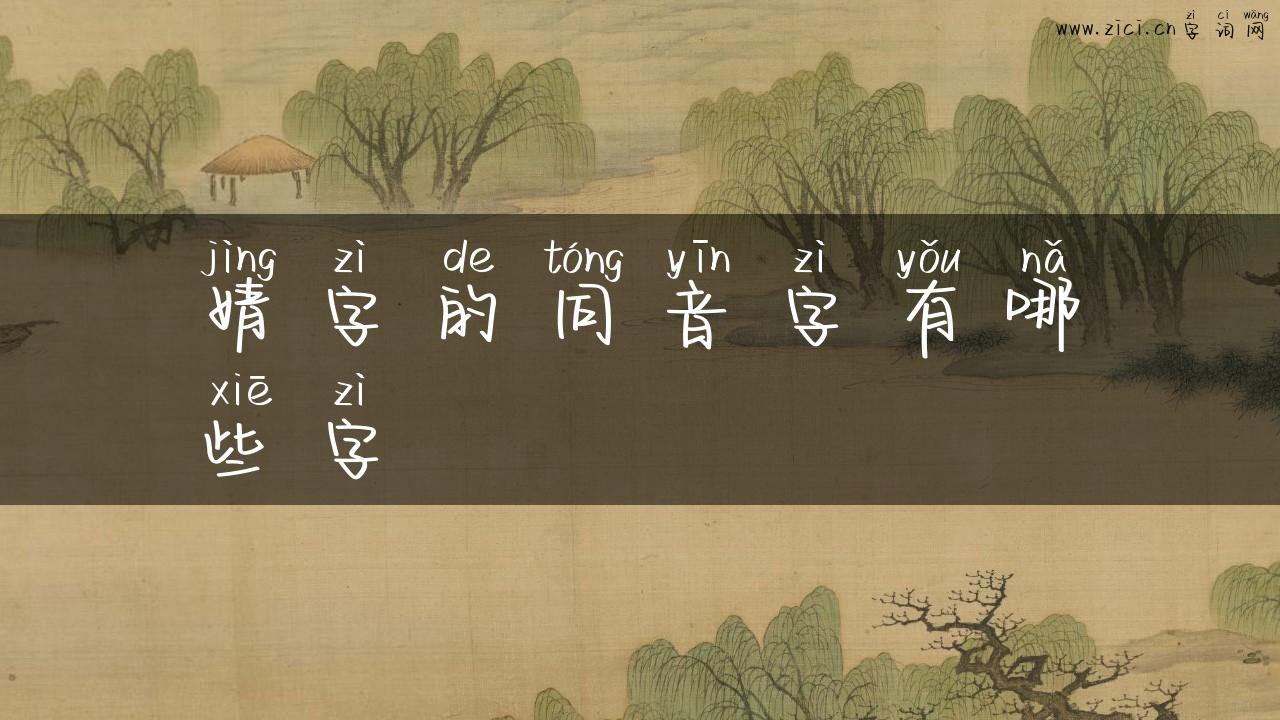 zì cí wǎng
www.zici.cn 字 词 网
jìng zì de tóng yīn zì yǒu nǎ
婧 字 的 同 音 字 有 哪
xiē zì
些 字